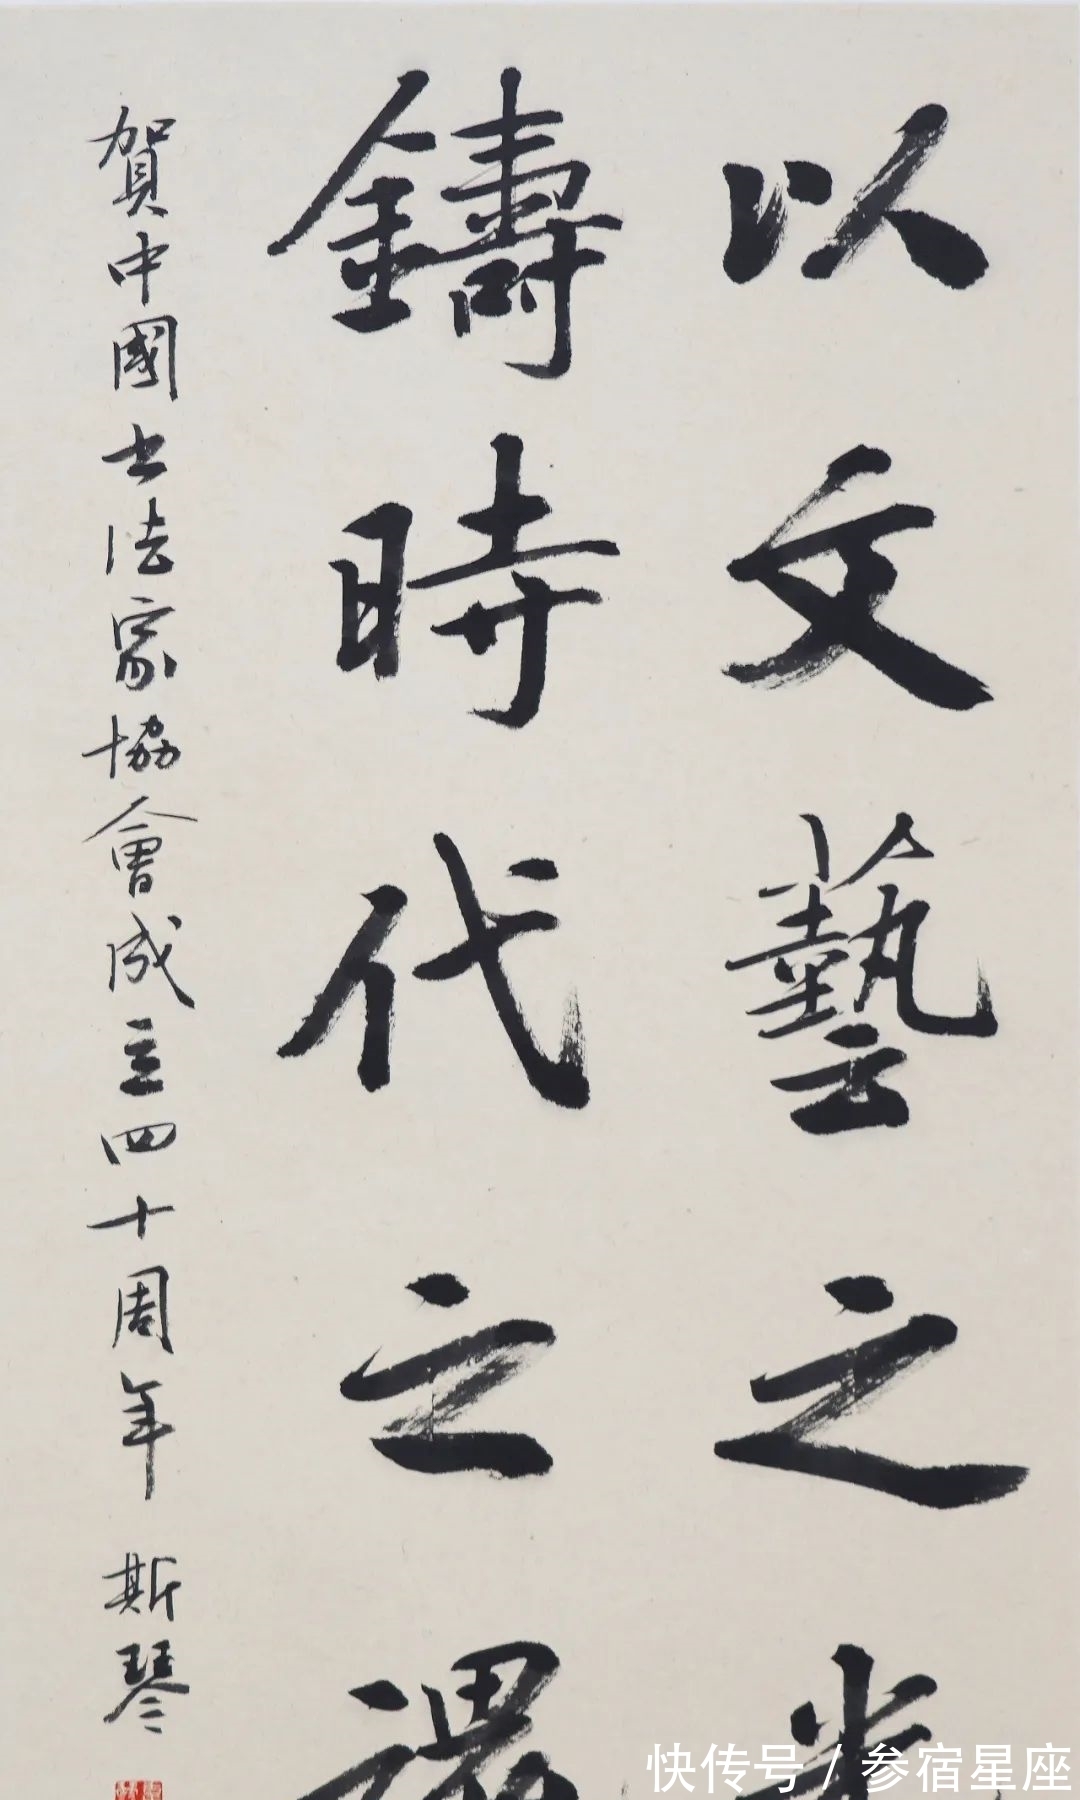 以文藝之
鑄時代之
賀中國书法家協會成立四十周年 斯琴
快传号 / 参宿星座